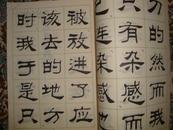 刀的然而我
只有杂感而
已连杂感也
被放进了应
该去的地方
时我于是只